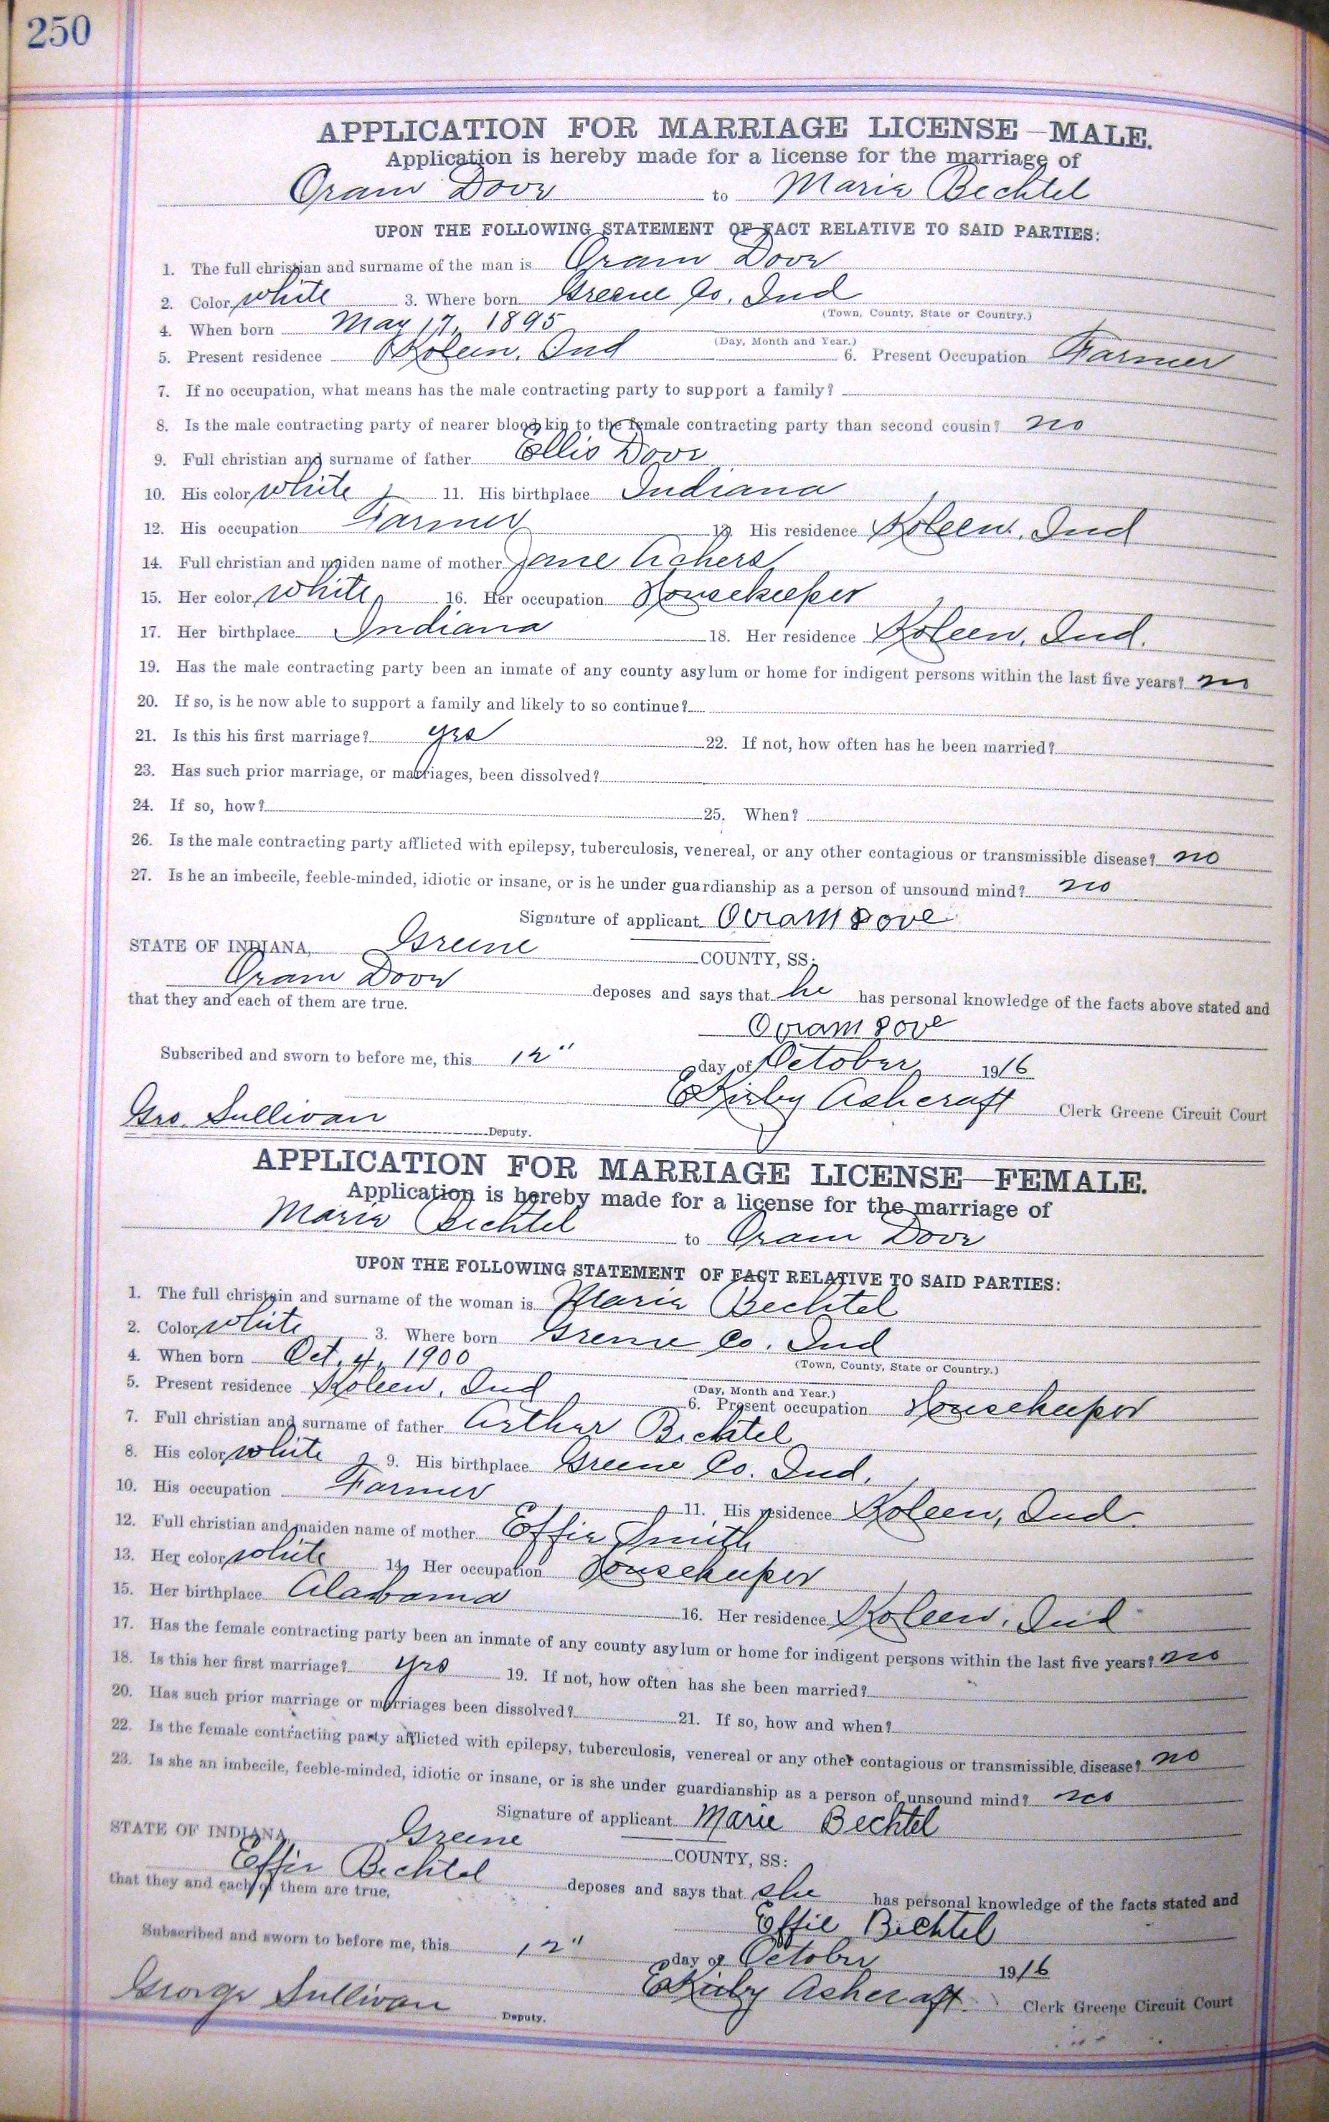 250
APPLICATION FOR MARRIAGE LICENSE—MALE.
Application is hereby made for a license for the marriage of
Oram Dove to Marie Bechtel
UPON THE FOLLOWING STATEMENT OF FACT RELATIVE TO SAID PARTIES:
1. The full christian and surname of the man is Oram Dove
2. Color white 3. Where born Greene Co. Ind
(Town, County, State or Country.)
4. When born May 17, 1895
(Day, Month and Year.)
5. Present residence Koleen, Ind 6. Present Occupation Farmer
7. If no occupation, what means has the male contracting party to support a family?
8. Is the male contracting party of nearer blood kin to the female contracting party than second cousin? no
9. Full christian and surname of father Ellis Dove
10. His color white 11. His birthplace Indiana
12. His occupation Farmer 13. His residence Koleen, Ind
14. Full christian and maiden name of mother Jane Achers
15. Her color white 16. Her occupation Housekeeper
17. Her birthplace Indiana 18. Her residence Koleen, Ind.
19. Has the male contracting party been an inmate of any county asylum or home for indigent persons within the last five years? no
20. If so, is he now able to support a family and likely to so continue?
21. Is this his first marriage? yes 22. If not, how often has he been married?
23. Has such prior marriage, or marriages, been dissolved?
24. If so, how? 25. When?
26. Is the male contracting party afflicted with epilepsy, tuberculosis, venereal, or any other contagious or transmissible disease? no
27. Is he an imbecile, feeble-minded, idiotic or insane, or is he under guardianship as a person of unsound mind? no
Signature of applicant Oram Dove
STATE OF INDIANA, Greene COUNTY, SS:
Oram Dove deposes and says that he has personal knowledge of the facts above stated and
that they and each of them are true.
Oram Dove
Subscribed and sworn to before me, this 12" day of October 1916
E Kirby Ashcraft Clerk Greene Circuit Court
Geo. Sullivan Deputy.
APPLICATION FOR MARRIAGE LICENSE—FEMALE.
Application is hereby made for a license for the marriage of
Marie Bechtel to Oram Dove
UPON THE FOLLOWING STATEMENT OF FACT RELATIVE TO SAID PARTIES:
1. The full christain and surname of the woman is Marie Bechtel
2. Color white 3. Where born Greene Co. Ind
(Town, County, State or Country.)
4. When born Oct. 4, 1900
(Day, Month and Year.)
5. Present residence Koleen, Ind 6. Present occupation Housekeeper
7. Full christian and surname of father Arthur Bechtel
8. His color white 9. His birthplace Greene Co. Ind.
10. His occupation Farmer 11. His residence Koleen, Ind.
12. Full christian and maiden name of mother Effie Smith
13. Her color white 14. Her occupation Housekeeper
15. Her birthplace Alabama 16. Her residence Koleen, Ind
17. Has the female contracting party been an inmate of any county asylum or home for indigent persons within the last five years? no
18. Is this her first marriage? yes 19. If not, how often has she been married?
20. Has such prior marriage or marriages been dissolved? 21. If so, how and when?
22. Is the female contracting party afflicted with epilepsy, tuberculosis, venereal or any other contagious or transmissible disease? no
23. Is she an imbecile, feeble-minded, idiotic or insane, or is she under guardianship as a person of unsound mind? no
Signature of applicant Marie Bechtel
STATE OF INDIANA, Greene COUNTY, SS:
Effie Bechtel deposes and says that she has personal knowledge of the facts stated and
that they and each of them are true,
Effie Bechtel
Subscribed and sworn to before me, this 12" day of October 1916
E Kirby Ashcraft Clerk Greene Circuit Court
George Sullivan Deputy.